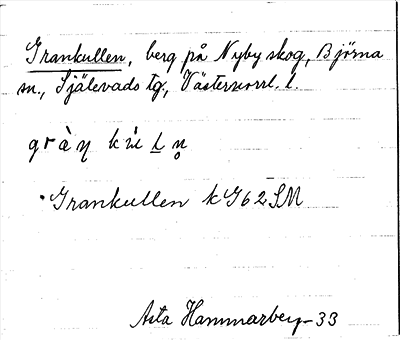 Grankullen, berg på Nyby skog, Björna
sn., Själevads tg., Västernorrl. l.
gràŋ kù̇ḻ n̥
•Grankullen kG62SM
Asta Hammarberg-33